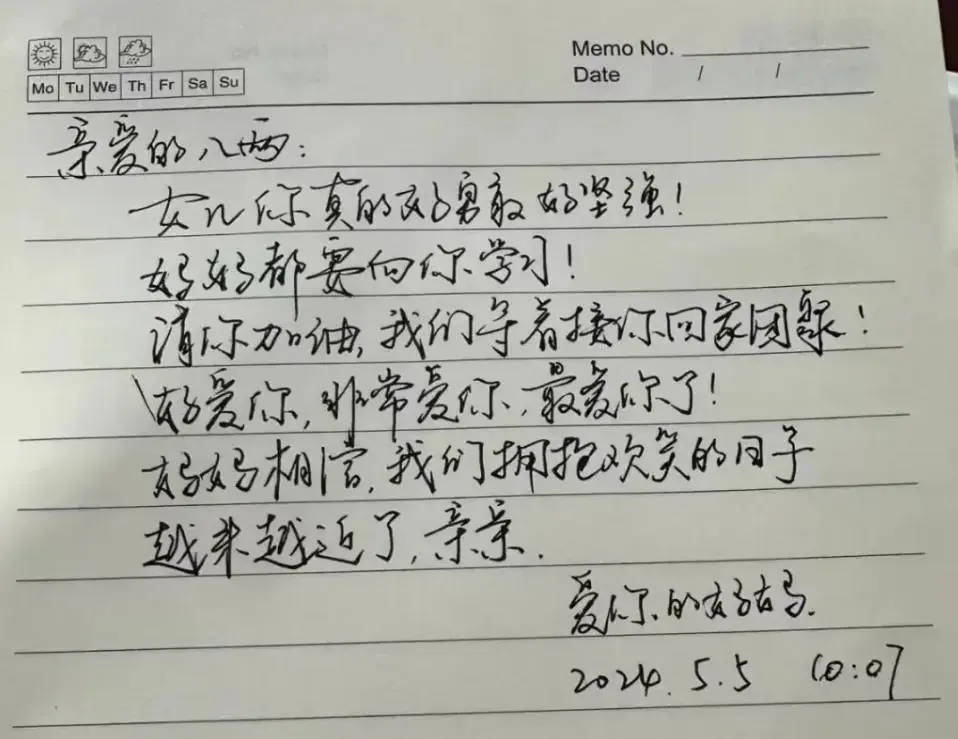 Memo No.
Date / /
Mo Tu We Th Fr Sa Su
亲爱的八两:
女儿你真的好勇敢好坚强!
妈妈都要向你学习!
请你加油,我们等着接你回家团聚!
好爱你,非常爱你,最爱你了!
妈妈相信,我们拥抱欢笑的日子
越来越近了,亲亲.
爱你的妈妈.
2024.5.5 10:07